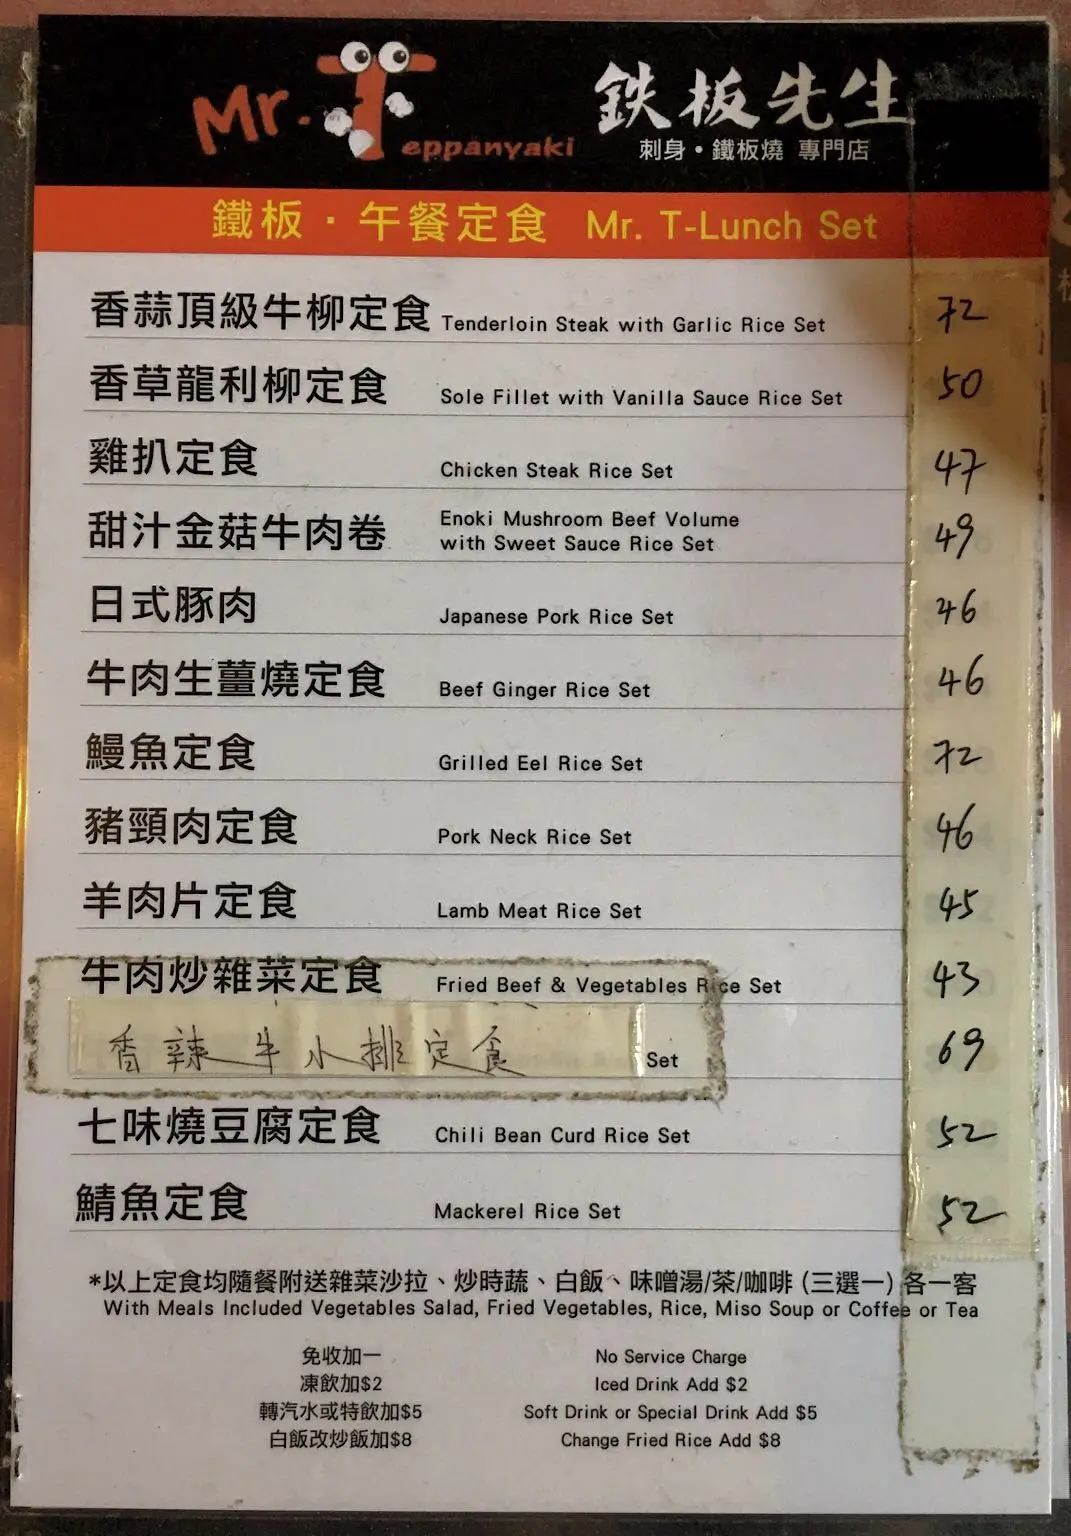 Mr. Teppanyaki
鉄板先生
刺身·鐵板燒 專門店
鐵板·午餐定食 Mr. T-Lunch Set
香蒜頂級牛柳定食 Tenderloin Steak with Garlic Rice Set 72
香草龍利柳定食 Sole Fillet with Vanilla Sauce Rice Set 50
雞扒定食 Chicken Steak Rice Set 47
甜汁金菇牛肉卷 Enoki Mushroom Beef Volume
with Sweet Sauce Rice Set 49
日式豚肉 Japanese Pork Rice Set 46
牛肉生薑燒定食 Beef Ginger Rice Set 46
鰻魚定食 Grilled Eel Rice Set 72
豬頸肉定食 Pork Neck Rice Set 46
羊肉片定食 Lamb Meat Rice Set 45
牛肉炒雜菜定食 Fried Beef & Vegetables Rice Set 43
香辣牛小排定食 Set 69
七味燒豆腐定食 Chili Bean Curd Rice Set 52
鯖魚定食 Mackerel Rice Set 52
*以上定食均隨餐附送雜菜沙拉、炒時蔬、白飯、味噌湯/茶/咖啡 (三選一) 各一客
With Meals Included Vegetables Salad, Fried Vegetables, Rice, Miso Soup or Coffee or Tea
免收加一 No Service Charge
凍飲加$2 Iced Drink Add $2
轉汽水或特飲加$5 Soft Drink or Special Drink Add $5
白飯改炒飯加$8 Change Fried Rice Add $8